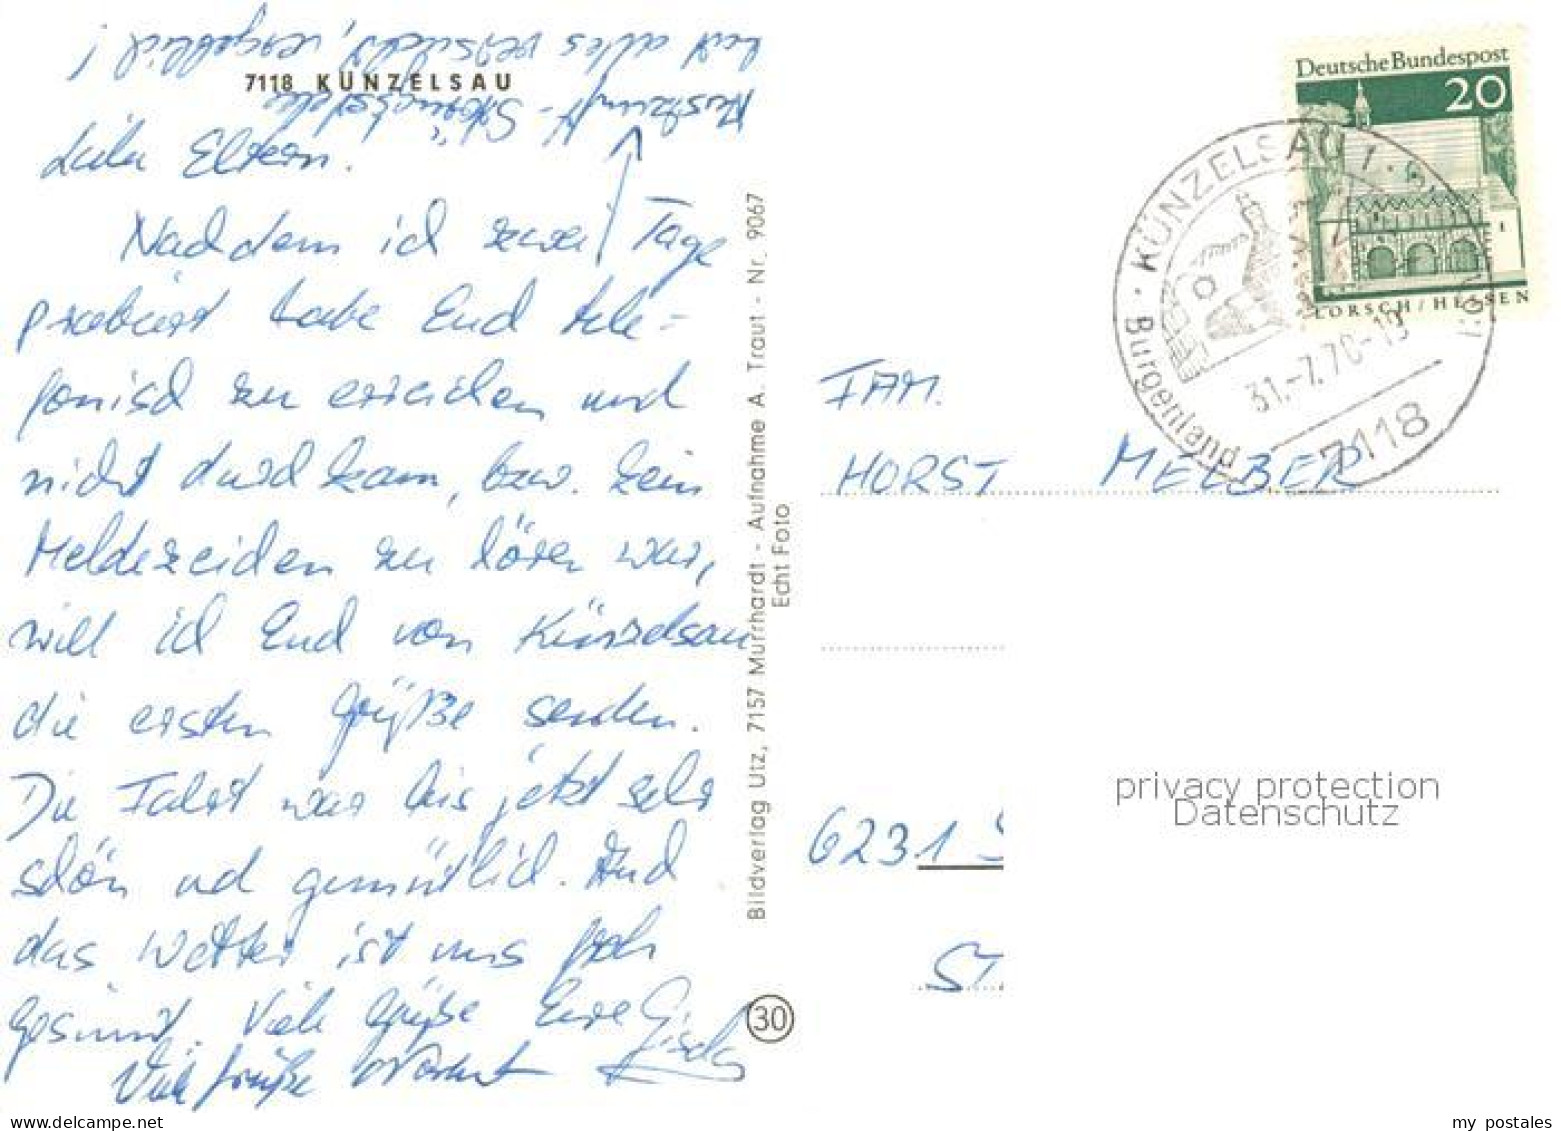 7118 KÜNZELSAU
Liebe Eltern.
Nachdem ich zwei Tage
probiert habe Euch tele=
fonisch zu erreichen und
nicht durchkam, bzw. kein
Meldezeichen zu hören war,
will ich Euch von Künzelsau
die ersten Grüße senden.
Die Fahrt war bis jetzt sehr
schön und gemütlich. Und
das Wetter ist uns froh
gesinnt. Viele Grüße Eure Gisela
Viele Grüße
hat alles versucht, vergeblich!
"Störungsstelle
Bildverlag Utz, 7157 Murrhardt - Aufnahme A. Traut - Nr. 9067
Echt Foto
30
Deutsche Bundespost
20
LORSCH/HESSEN
KÜNZELSAU 1
31.-7.70-19
7118
Burgenland
FAM.
HORST MELBER
6231 S
ST
privacy protection
Datenschutz
my postales